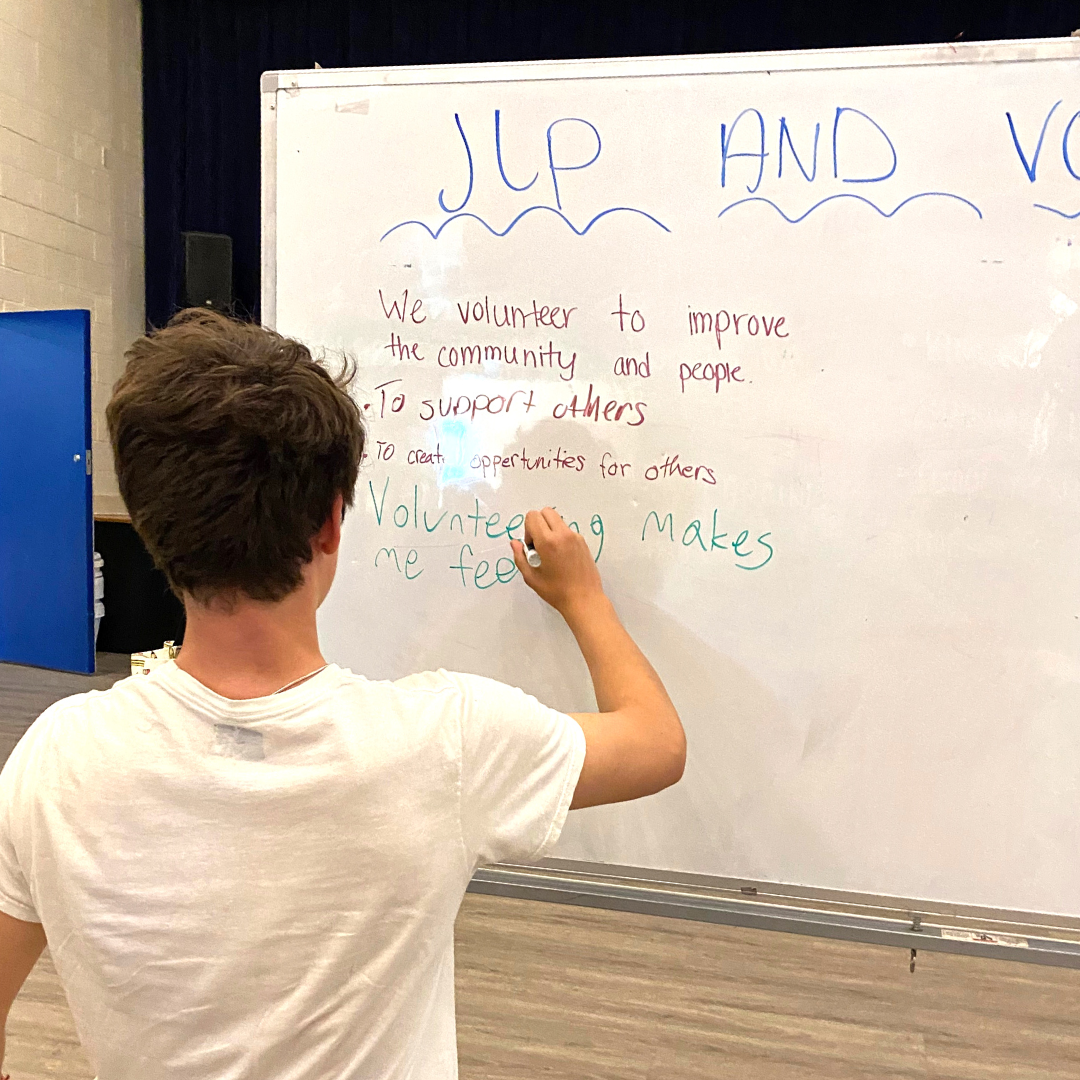 JLP AND VO
We volunteer to improve
the community and people.
• To support others
• To create oppertunities for others
Volunteering makes
me fee